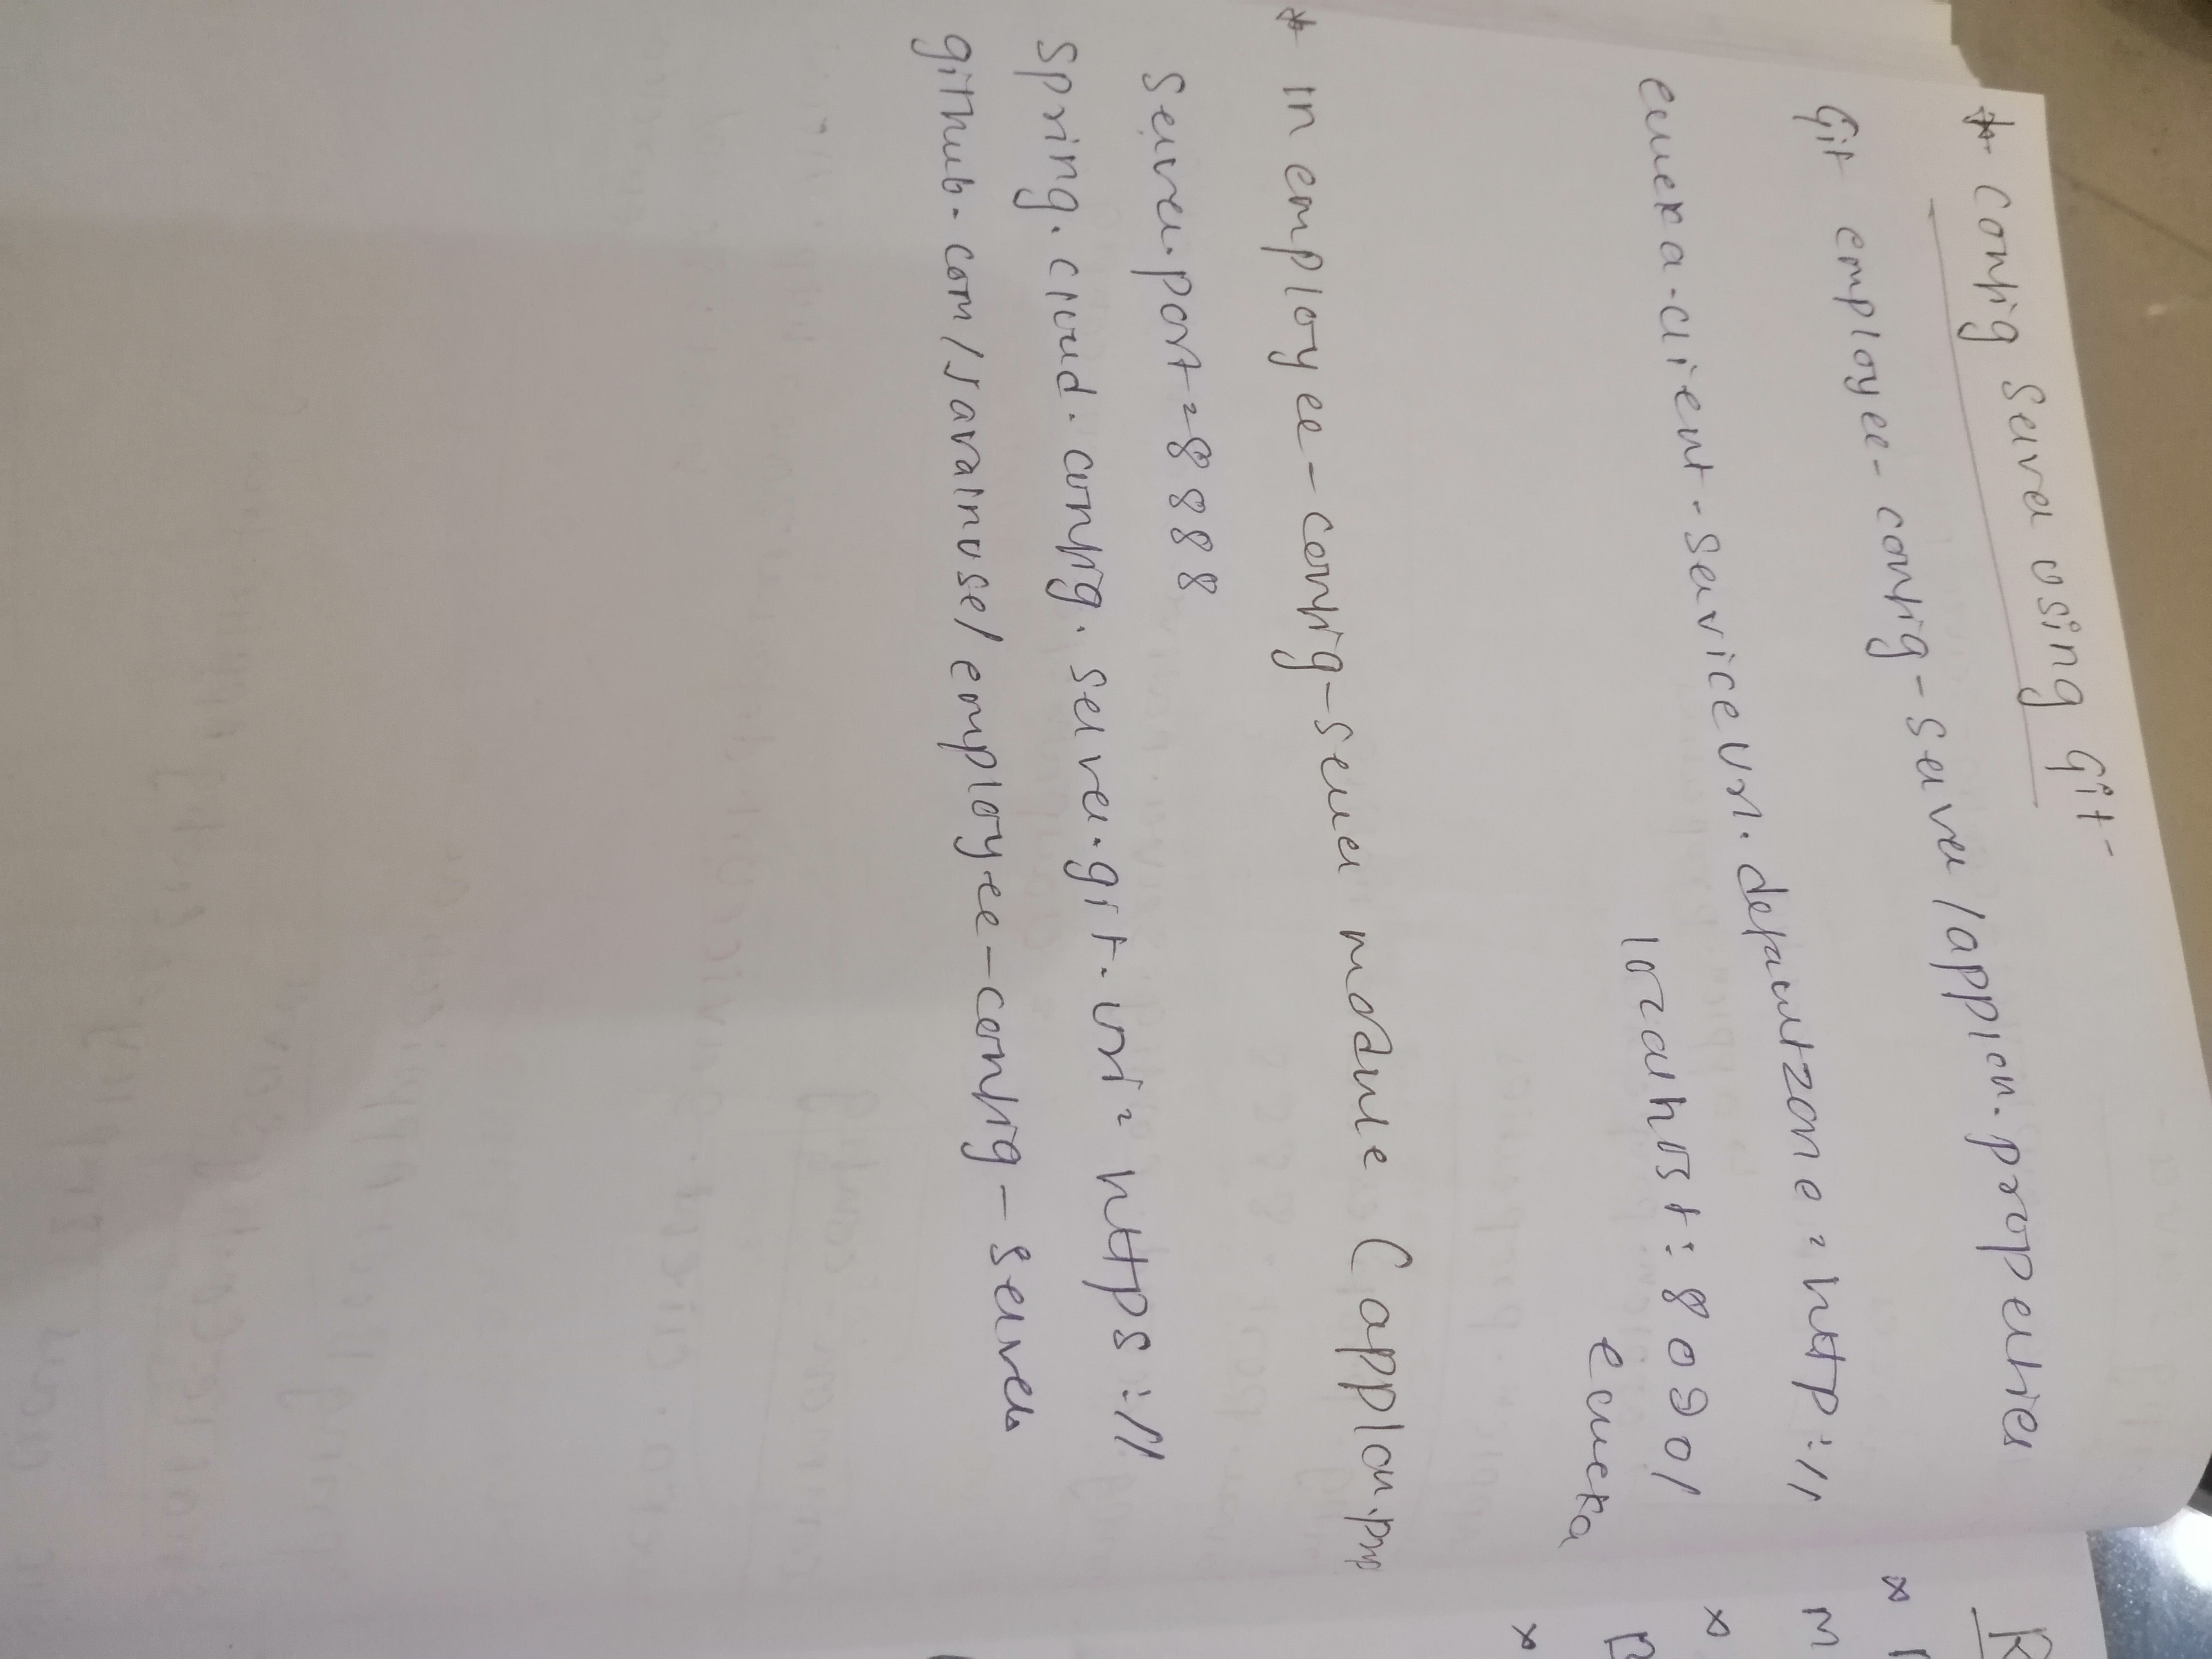 * Config Server using Git -
Git employee-config-server/applcn.properties
eureka.client.serviceUrl.defaultZone=http://
localhost:8090/
eureka
* In employee-config-server module (applcn.prop
server.port=8888
spring.cloud.config.server.git.uri=https://
github.com/savainuse/employee-config-server